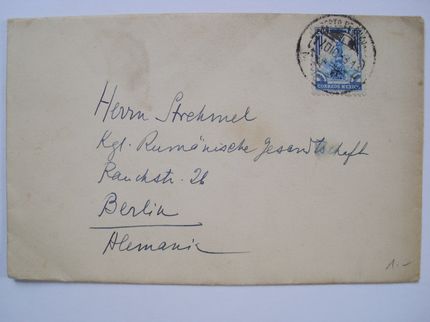 CORREOS MEXICO
Herrn Strehmel
Kgl. Rumänische Gesandtschaft
Rauchstr. 26
Berlin
Alemania
1.-